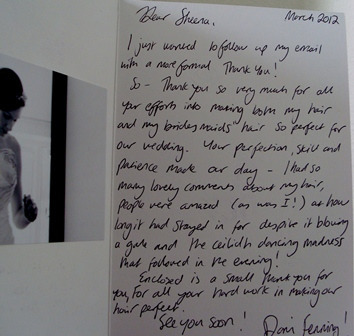 Dear Sheena, March 2012
I just wanted to follow up my email
with a more formal Thank You!
So - Thank you so very much for all
your efforts into making both my hair
and my bridesmaids' hair so perfect for
our wedding. Your perfection, skill and
patience made our day - I had so
many lovely comments about my hair,
people were amazed (as was I!) at how
long it had stayed in for despite it blowing
a gale and the ceilidh dancing madness
that followed in the evening!
Enclosed is a small thank you for
you, for all your hard work in making our
hair perfect.
See you soon!